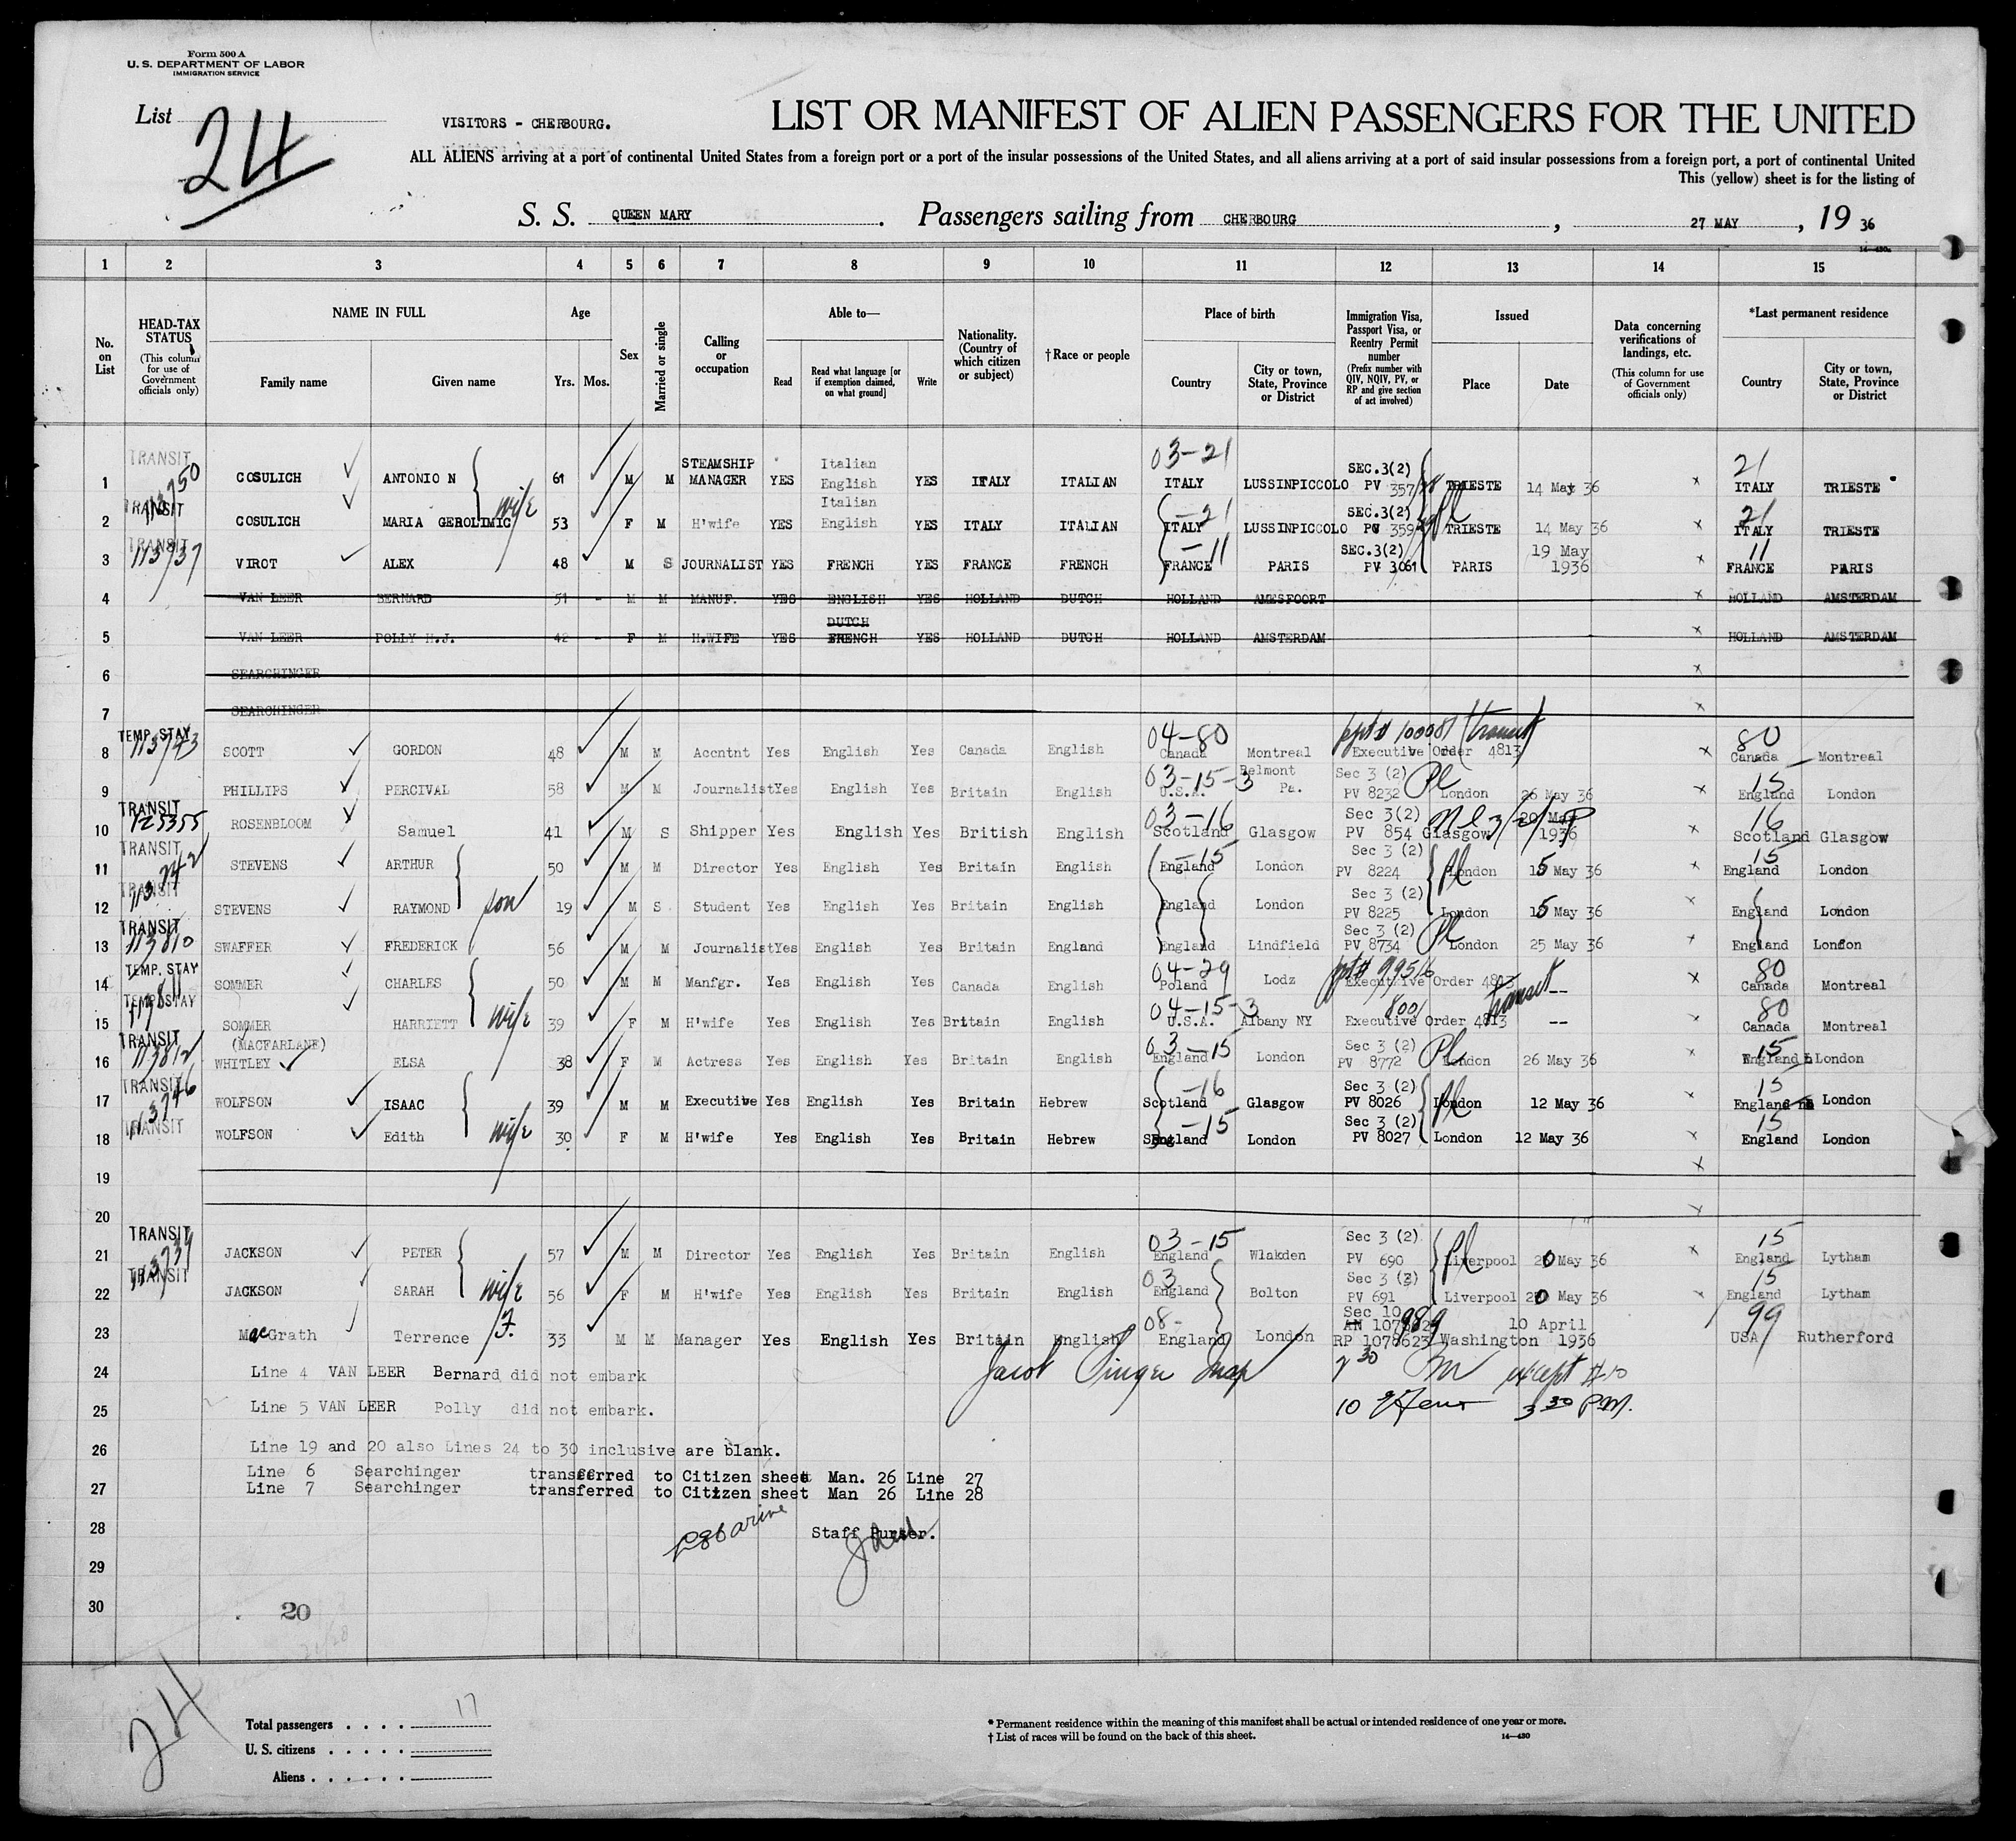 Form 500 A
U. S. DEPARTMENT OF LABOR
IMMIGRATION SERVICE
List 24
VISITORS - CHERBOURG.
LIST OR MANIFEST OF ALIEN PASSENGERS FOR THE UNITED
ALL ALIENS arriving at a port of continental United States from a foreign port or a port of the insular possessions of the United States, and all aliens arriving at a port of said insular possessions from a foreign port, a port of continental United
This (yellow) sheet is for the listing of
S. S. QUEEN MARY. Passengers sailing from CHERBOURG, 27 MAY, 19 36
14—430a
1 2 3 4 5 6 7 8 9 10 11 12 13 14 15
No. on List
HEAD-TAX STATUS (This column for use of Government officials only)
NAME IN FULL Family name Given name
Age Yrs. Mos.
Sex
Married or single
Calling or occupation
Able to— Read Read what language [or if exemption claimed, on what ground] Write
Nationality. (Country of which citizen or subject)
†Race or people
Place of birth Country City or town, State, Province or District
Immigration Visa, Passport Visa, or Reentry Permit number (Prefix number with QIV, NQIV, PV, or RP and give section of act involved)
Issued Place Date
Data concerning verifications of landings, etc. (This column for use of Government officials only)
*Last permanent residence Country City or town, State, Province or District
TRANSIT STEAMSHIP Italian 03-21 SEC.3(2) 21
1 113750 COSULICH ANTONIO N 61 M M MANAGER YES English YES ITALY ITALIAN ITALY LUSSINPICCOLO PV 357 TRIESTE 14 May 36 ITALY TRIESTE
TRANSIT wife Italian -21 SEC.3(2) Pl 21
2 COSULICH MARIA GEROLIMIC 53 F M H'wife YES English YES ITALY ITALIAN ITALY LUSSINPICCOLO PV 359 TRIESTE 14 May 36 ITALY TRIESTE
TRANSIT -11 SEC.3(2) 19 May 11
3 113737 VIROT ALEX 48 M S JOURNALIST YES FRENCH YES FRANCE FRENCH FRANCE PARIS PV 3061 PARIS 1936 FRANCE PARIS
4 VAN LEER BERNARD 51 - M M MANUF. YES ENGLISH YES HOLLAND DUTCH HOLLAND AMESFOORT HOLLAND AMSTERDAM
DUTCH
5 VAN LEER POLLY H.J. 42 - F M H.WIFE YES FRENCH YES HOLLAND DUTCH HOLLAND AMSTERDAM HOLLAND AMSTERDAM
6 SEARCHINGER
7 SEARCHINGER
TEMP. STAY 04-80 ppt# 100081 (transit) 80
8 113743 SCOTT GORDON 48 M M Accntnt Yes English Yes Canada English Canada Montreal Executive Order 4813 Canada Montreal
03-15-3 Belmont Sec 3 (2) Pl 15
9 PHILLIPS PERCIVAL 58 M M Journalist Yes English Yes Britain English U.S.A. Pa. PV 8232 London 26 May 36 England London
TRANSIT 03-16 Sec 3(2) 20 May 16
10 125355 ROSENBLOOM Samuel 41 M S Shipper Yes English Yes British English Scotland Glasgow PV 854 Glasgow 1936 Scotland Glasgow
TRANSIT -15 Sec 3 (2) 15
11 113742 STEVENS ARTHUR 50 M M Director Yes English Yes Britain English England London PV 8224 London 15 May 36 England London
TRANSIT son Sec 3 (2) Pl
12 STEVENS RAYMOND 19 M S Student Yes English Yes Britain English England London PV 8225 London 15 May 36 England London
TRANSIT Sec 3 (2) Pl
13 113810 SWAFFER FREDERICK 56 M M Journalist Yes English Yes Britain England England Lindfield PV 8734 London 25 May 36 England London
TEMP. STAY 04-29 ppt# 99516 80
14 113811 SOMMER CHARLES 50 M M Manfgr. Yes English Yes Canada English Poland Lodz Executive Order 4813 -- Canada Montreal
TEMP STAY wife 04-15-3 8001 transit 80
15 SOMMER HARRIETT 39 F M H'wife Yes English Yes Britain English U.S.A. Albany NY Executive Order 4813 -- Canada Montreal
TRANSIT (MACFARLANE) 03-15 Sec 3 (2) Pl 15
16 113812 WHITLEY ELSA 38 F M Actress Yes English Yes Britain English England London PV 8772 London 26 May 36 England London
TRANSIT -16 Sec 3 (2) 15
17 113746 WOLFSON ISAAC 39 M M Executive Yes English Yes Britain Hebrew Scotland Glasgow PV 8026 London 12 May 36 England London
TRANSIT wife -15 Sec 3 (2) Pl 15
18 WOLFSON Edith 30 F M H'wife Yes English Yes Britain Hebrew England London PV 8027 London 12 May 36 England London
19
20
TRANSIT 03-15 Sec 3 (2) 15
21 113739 JACKSON PETER 57 M M Director Yes English Yes Britain English England Wlakden PV 690 Liverpool 20 May 36 England Lytham
TRANSIT wife 03 Sec 3 (2) Pl 15
22 JACKSON SARAH 56 F M H'wife Yes English Yes Britain English England Bolton PV 691 Liverpool 20 May 36 England Lytham
F. 08- Sec 10 989 10 April 99
23 MacGrath Terrence 33 M M Manager Yes English Yes Britain English England London RP 1078623 Washington 1936 USA Rutherford
24 Line 4 VAN LEER Bernard did not embark Jacob Singer Insp 2 30 except #10
25 Line 5 VAN LEER Polly did not embark. 10 3 30 P.M.
26 Line 19 and 20 also Lines 24 to 30 inclusive are blank.
Line 6 Searchinger transferred to Citizen sheet Man. 26 Line 27
27 Line 7 Searchinger transferred to Citizen sheet Man 26 Line 28
28 Staff Purser.
29
30
20
24
Total passengers . . . . 17
U. S. citizens . . . . .
Aliens . . . . . .
* Permanent residence within the meaning of this manifest shall be actual or intended residence of one year or more.
† List of races will be found on the back of this sheet.
14—430